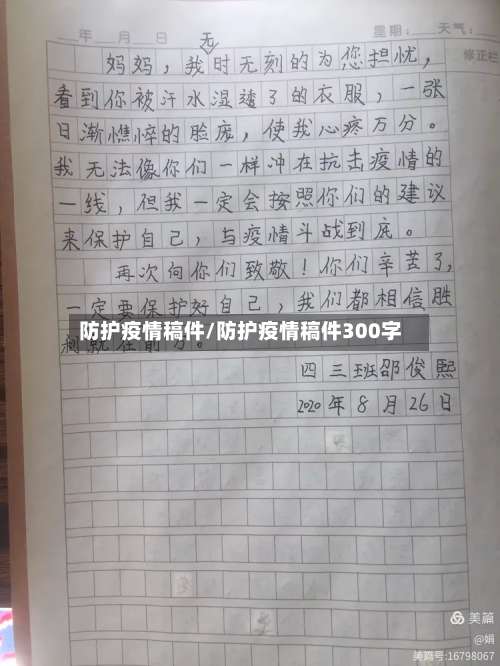 年 月 日 星期： 天气：
无
妈妈，我时无刻的为您担忧，
修正栏
看到你被汗水湿透了的衣服，一张
日渐憔悴的脸庞，使我心疼万分。
我无法像你们一样冲在抗击疫情的
一线，但我一定会按照你们的建议
来保护自己，与疫情斗战到底。
再次向你们致敬！你们辛苦了，
一定要保护好自己，我们都相信胜
防护疫情稿件/防护疫情稿件300字
利就在前方。
四三班邵俊熙
2020年8月26日
美篇
@娟
美篇号:16798067